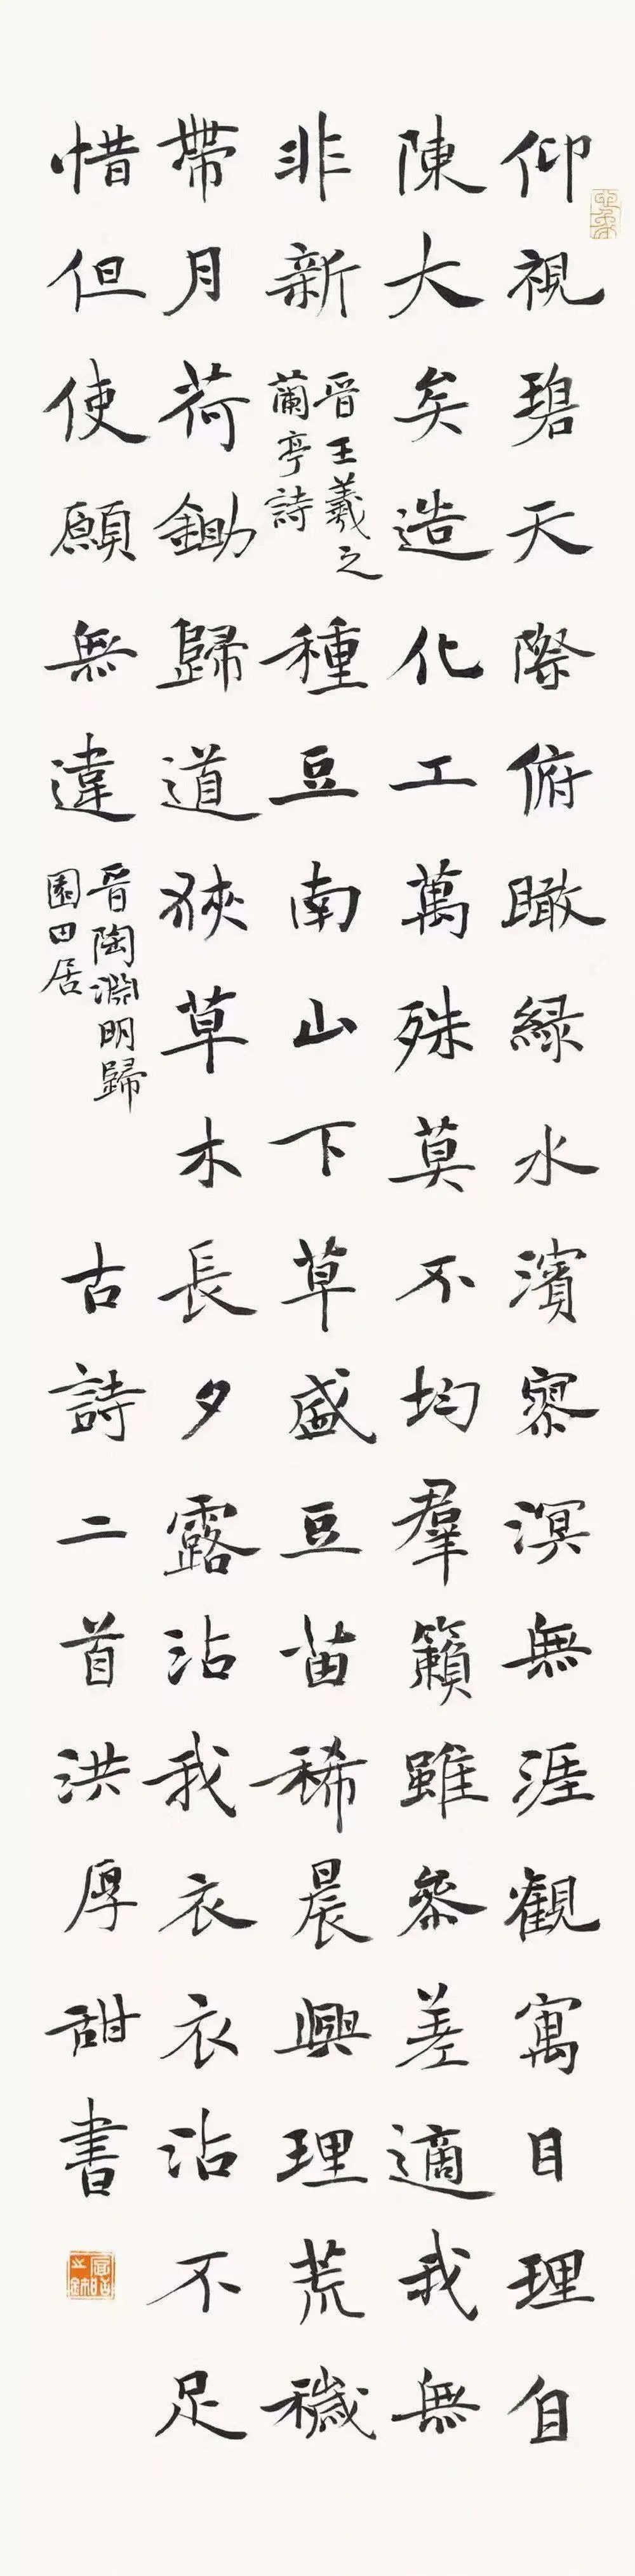 仰視碧天際俯瞰緑水濱寥溟無涯觀寓目理自
陳大矣造化工萬殊莫不均羣籟雖參差適我無
非新
晋王羲之
蘭亭詩
種豆南山下草盛豆苗稀晨興理荒穢
帶月荷鋤歸道狹草木長夕露沾我衣衣沾不足
惜但使願無違
晋陶淵明歸
園田居
古詩二首洪厚甜書